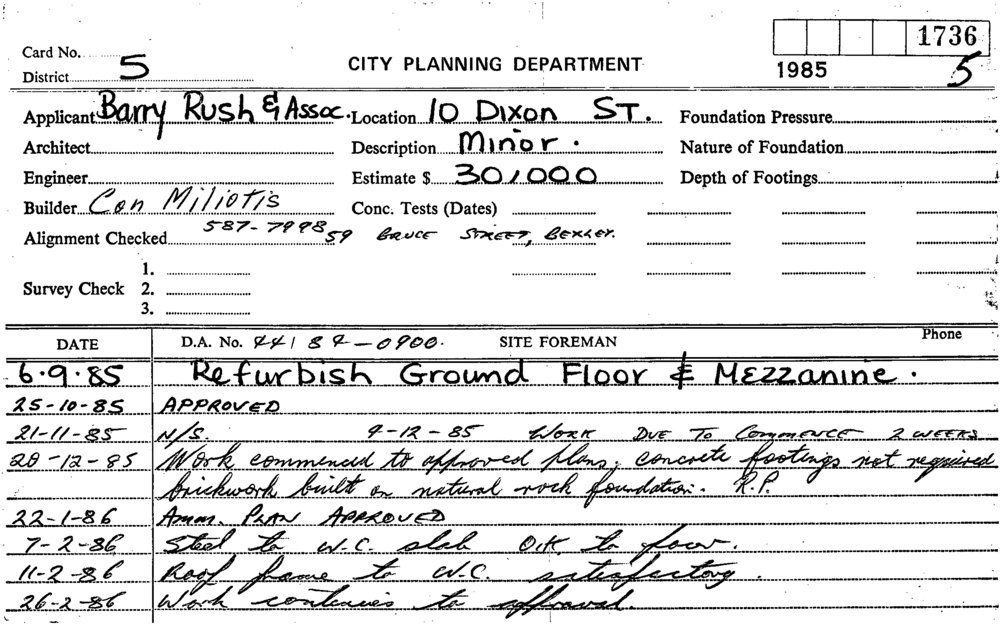 1736
Card No.
CITY PLANNING DEPARTMENT
1985
5
District 5
Applicant Barry Rush & Assoc. Location 10 Dixon ST. Foundation Pressure
Architect Description Minor. Nature of Foundation
Engineer Estimate $ 30,000 Depth of Footings
Builder Con Miliotis Conc. Tests (Dates)
Alignment Checked 587-7998 59 BRUCE STREET, BEXLEY.
1.
Survey Check 2.
3.
DATE D.A. No. 44 84-0900. SITE FOREMAN Phone
6.9.85 Refurbish Ground Floor & Mezzanine.
25-10-85 APPROVED
21-11-85 N/S. 9-12-85 WORK DUE TO COMMENCE 2 WEEKS
20-12-85 Work commenced to approved plans, concrete footings not required
brickwork built on natural rock foundation. R.P.
22-1-86 Amm. PLAN APPROVED
7-2-86 Steel to W.C. slab O.K. to pour.
11-2-86 Roof frame to W.C. satisfactory.
26-2-86 Work continues to approval.